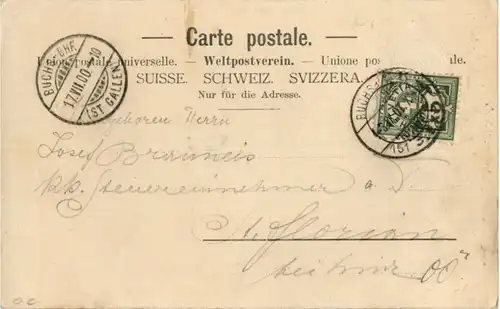 Carte postale.
Union postale universelle. — Weltpostverein. — Unione po ale.
SUISSE. SCHWEIZ. SVIZZERA.
Nur für die Adresse.
BUCHS-BHF.
17.VII.00.-10
(ST. GALLEN)
BUCHS
Herrn
Josef
kk. Steuereinnehmer a. D.
St. Florian
bei Linz